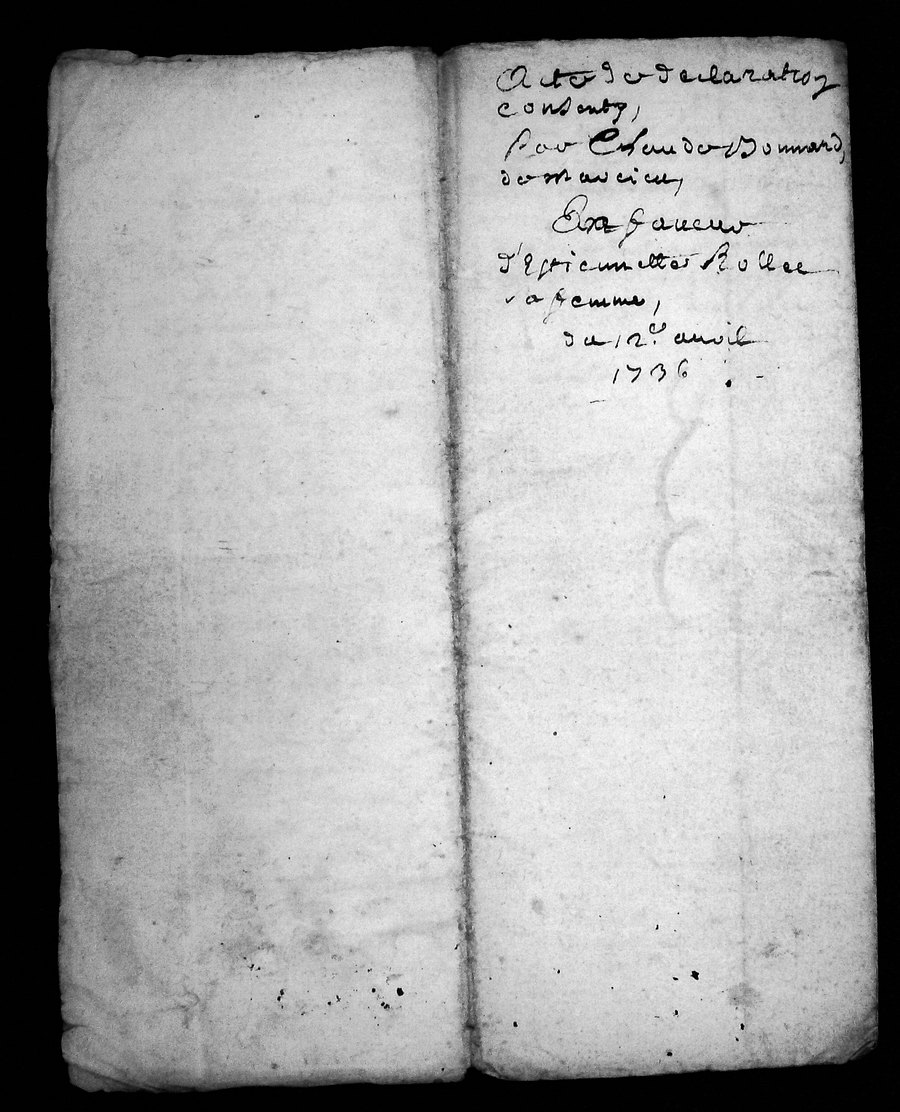 Acte de declaration
consenty,
Par Claude Bonnard,
de Marcieu,
En faveur
d'Estiennette Rollee
sa femme,
du 12.e avril
1736